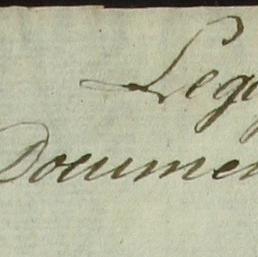 Lega
Documen